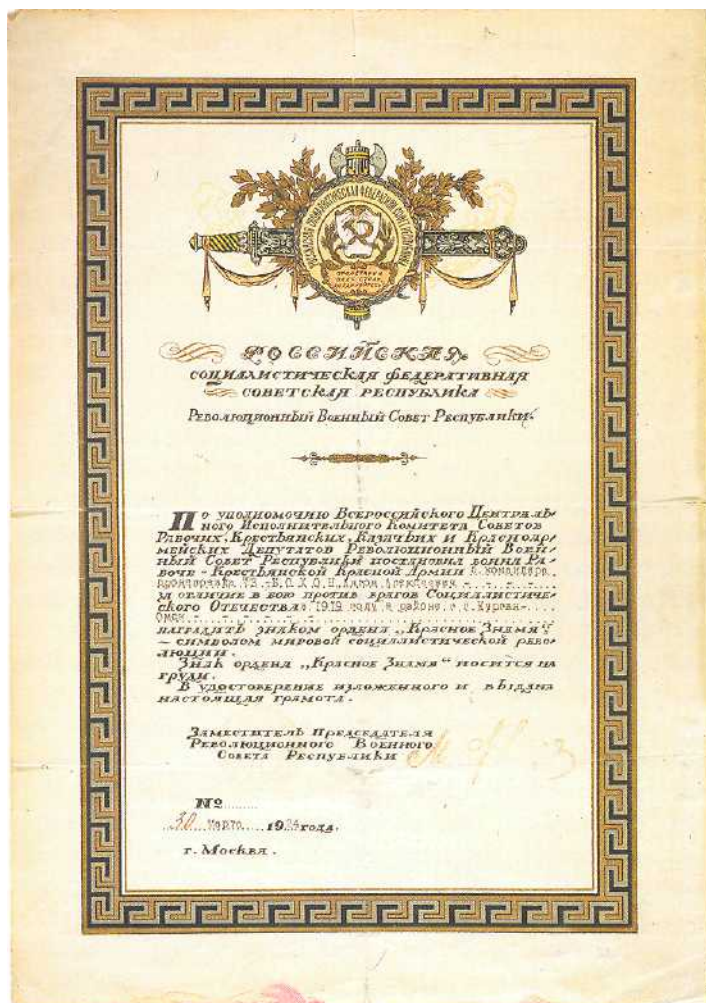 РОССИЙСКАЯ СОЦИАЛИСТИЧЕСКАЯ ФЕДЕРАТИВН. СОВЕТ. РЕСПУБЛИКА
ПРОЛЕТАРИИ
ВСЕХ СТРАН
СОЕДИНЯЙТЕСЬ
РОССИЙСКАЯ
СОЦИАЛИСТИЧЕСКАЯ ФЕДЕРАТИВНАЯ
СОВЕТСКАЯ РЕСПУБЛИКА
РЕВОЛЮЦИОННЫЙ ВОЕННЫЙ СОВЕТ РЕСПУБЛИКИ.
ПО УПОЛНОМОЧИЮ ВСЕРОССИЙСКОГО ЦЕНТРАЛЬ-
НОГО ИСПОЛНИТЕЛЬНОГО КОМИТЕТА СОВЕТОВ
РАБОЧИХ, КРЕСТЬЯНСКИХ, КАЗАЧЬИХ И КРАСНОАР-
МЕЙСКИХ ДЕПУТАТОВ РЕВОЛЮЦИОННЫЙ ВОЕН-
НЫЙ СОВЕТ РЕСПУБЛИКИ ПОСТАНОВИЛ ВОИНА РА-
БОЧЕ-КРЕСТЬЯНСКОЙ КРАСНОЙ АРМИИ б. командира
бронпоезда
ЗА ОТЛИЧИЕ В БОЮ ПРОТИВ ВРАГОВ СОЦИАЛИСТИЧЕ-
СКОГО ОТЕЧЕСТВА в 1919 году в районе г.г. Курган-
Омск
НАГРАДИТЬ ЗНАКОМ ОРДЕНА „КРАСНОЕ ЗНАМЯ“
- СИМВОЛОМ МИРОВОЙ СОЦИАЛИСТИЧЕСКОЙ РЕВО-
ЛЮЦИИ.
ЗНАК ОРДЕНА „КРАСНОЕ ЗНАМЯ“ НОСИТСЯ НА
ГРУДИ.
В УДОСТОВЕРЕНИЕ ИЗЛОЖЕННОГО И ВЫДАНА
НАСТОЯЩАЯ ГРАМОТА.
ЗАМЕСТИТЕЛЬ ПРЕДСЕДАТЕЛЯ
РЕВОЛЮЦИОННОГО ВОЕННОГО
СОВЕТА РЕСПУБЛИКИ
№
30 марта 1924 ГОДА.
Г. МОСКВА.